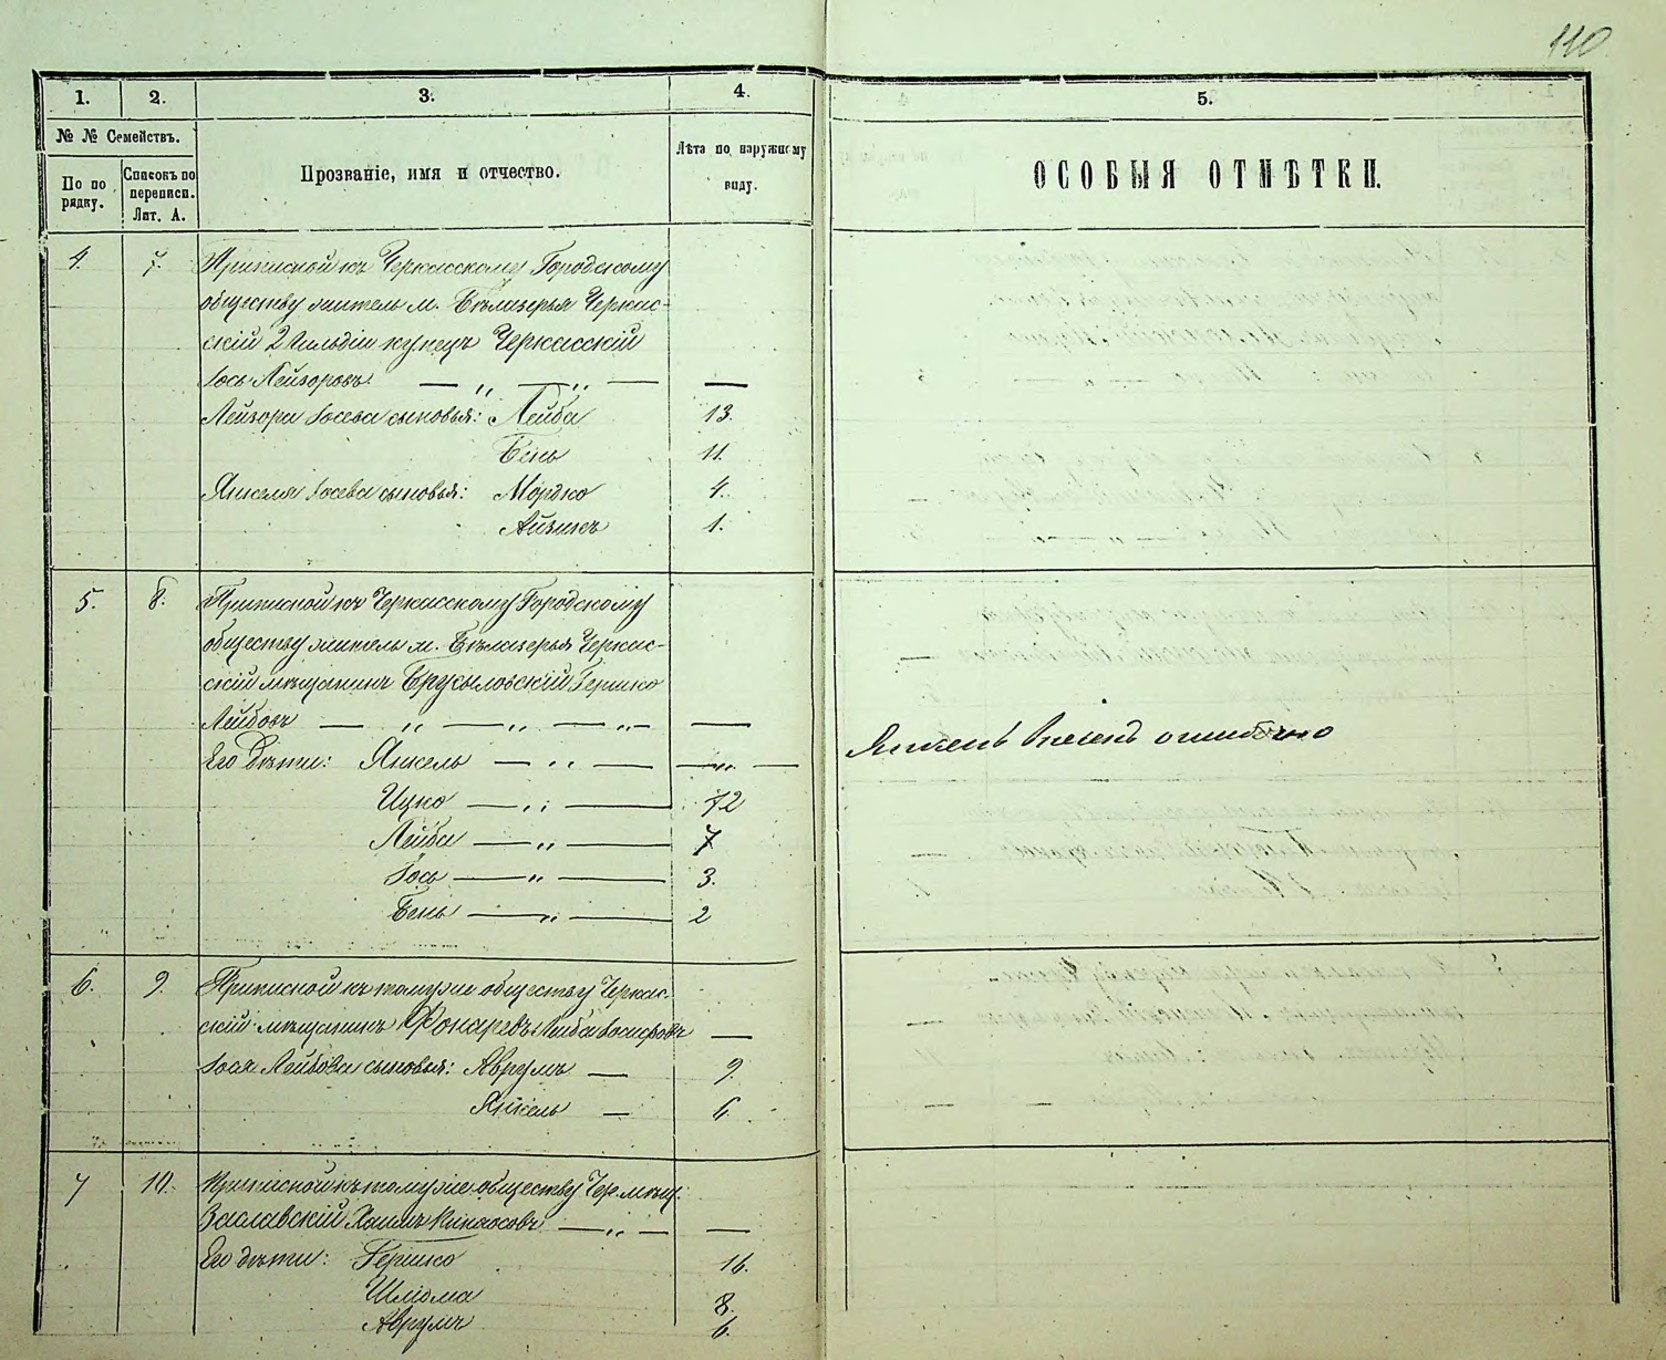 110
1. 2. 3. 4. 5.
№ № Семействъ.
По по рядку.
Списокъ по переписи. Лит. А.
Прозваніе, имя и отчество.
Лѣта по наружному виду.
ОСОБЫЯ ОТМѢТКИ.
4. 7. Приписной къ Черкасскому Городскому
обществу житель м. Бѣлозерья Черкас-
скій 2 Гильдіи купецъ Черкасскій
Іось Лейзоровъ — „ — „ — —
Лейзора Іосева сыновья: Лейба 13.
Бень 11.
Янкеля Іосева сыновья: Мордко 4.
Айзикъ 1.
5. 8. Приписной къ Черкасскому Городскому
обществу житель м. Бѣлозерья Черкас-
скій мѣщанинъ Брусиловскій Гершко
Лейбовъ — „ — „ — „ — —
Его дѣти: Янкель — „ — — „ — Янкель ошибочно
Ицко — „ — 12
Лейба — „ — 7
Іось — „ — 3.
Бень — „ — 2
6. 9. Приписной къ томуже обществу Черкас-
скій мѣщанинъ Фонаревъ Лейба —
Іося Лейбова сыновья: Аврумъ — 9.
Янкель — 6.
7 10. Приписной къ томуже обществу Чер. мѣщ.
Заславскій Хаимъ — „ — —
Его дѣти: Гершко 16.
Шліома 8.
Аврумъ 6.